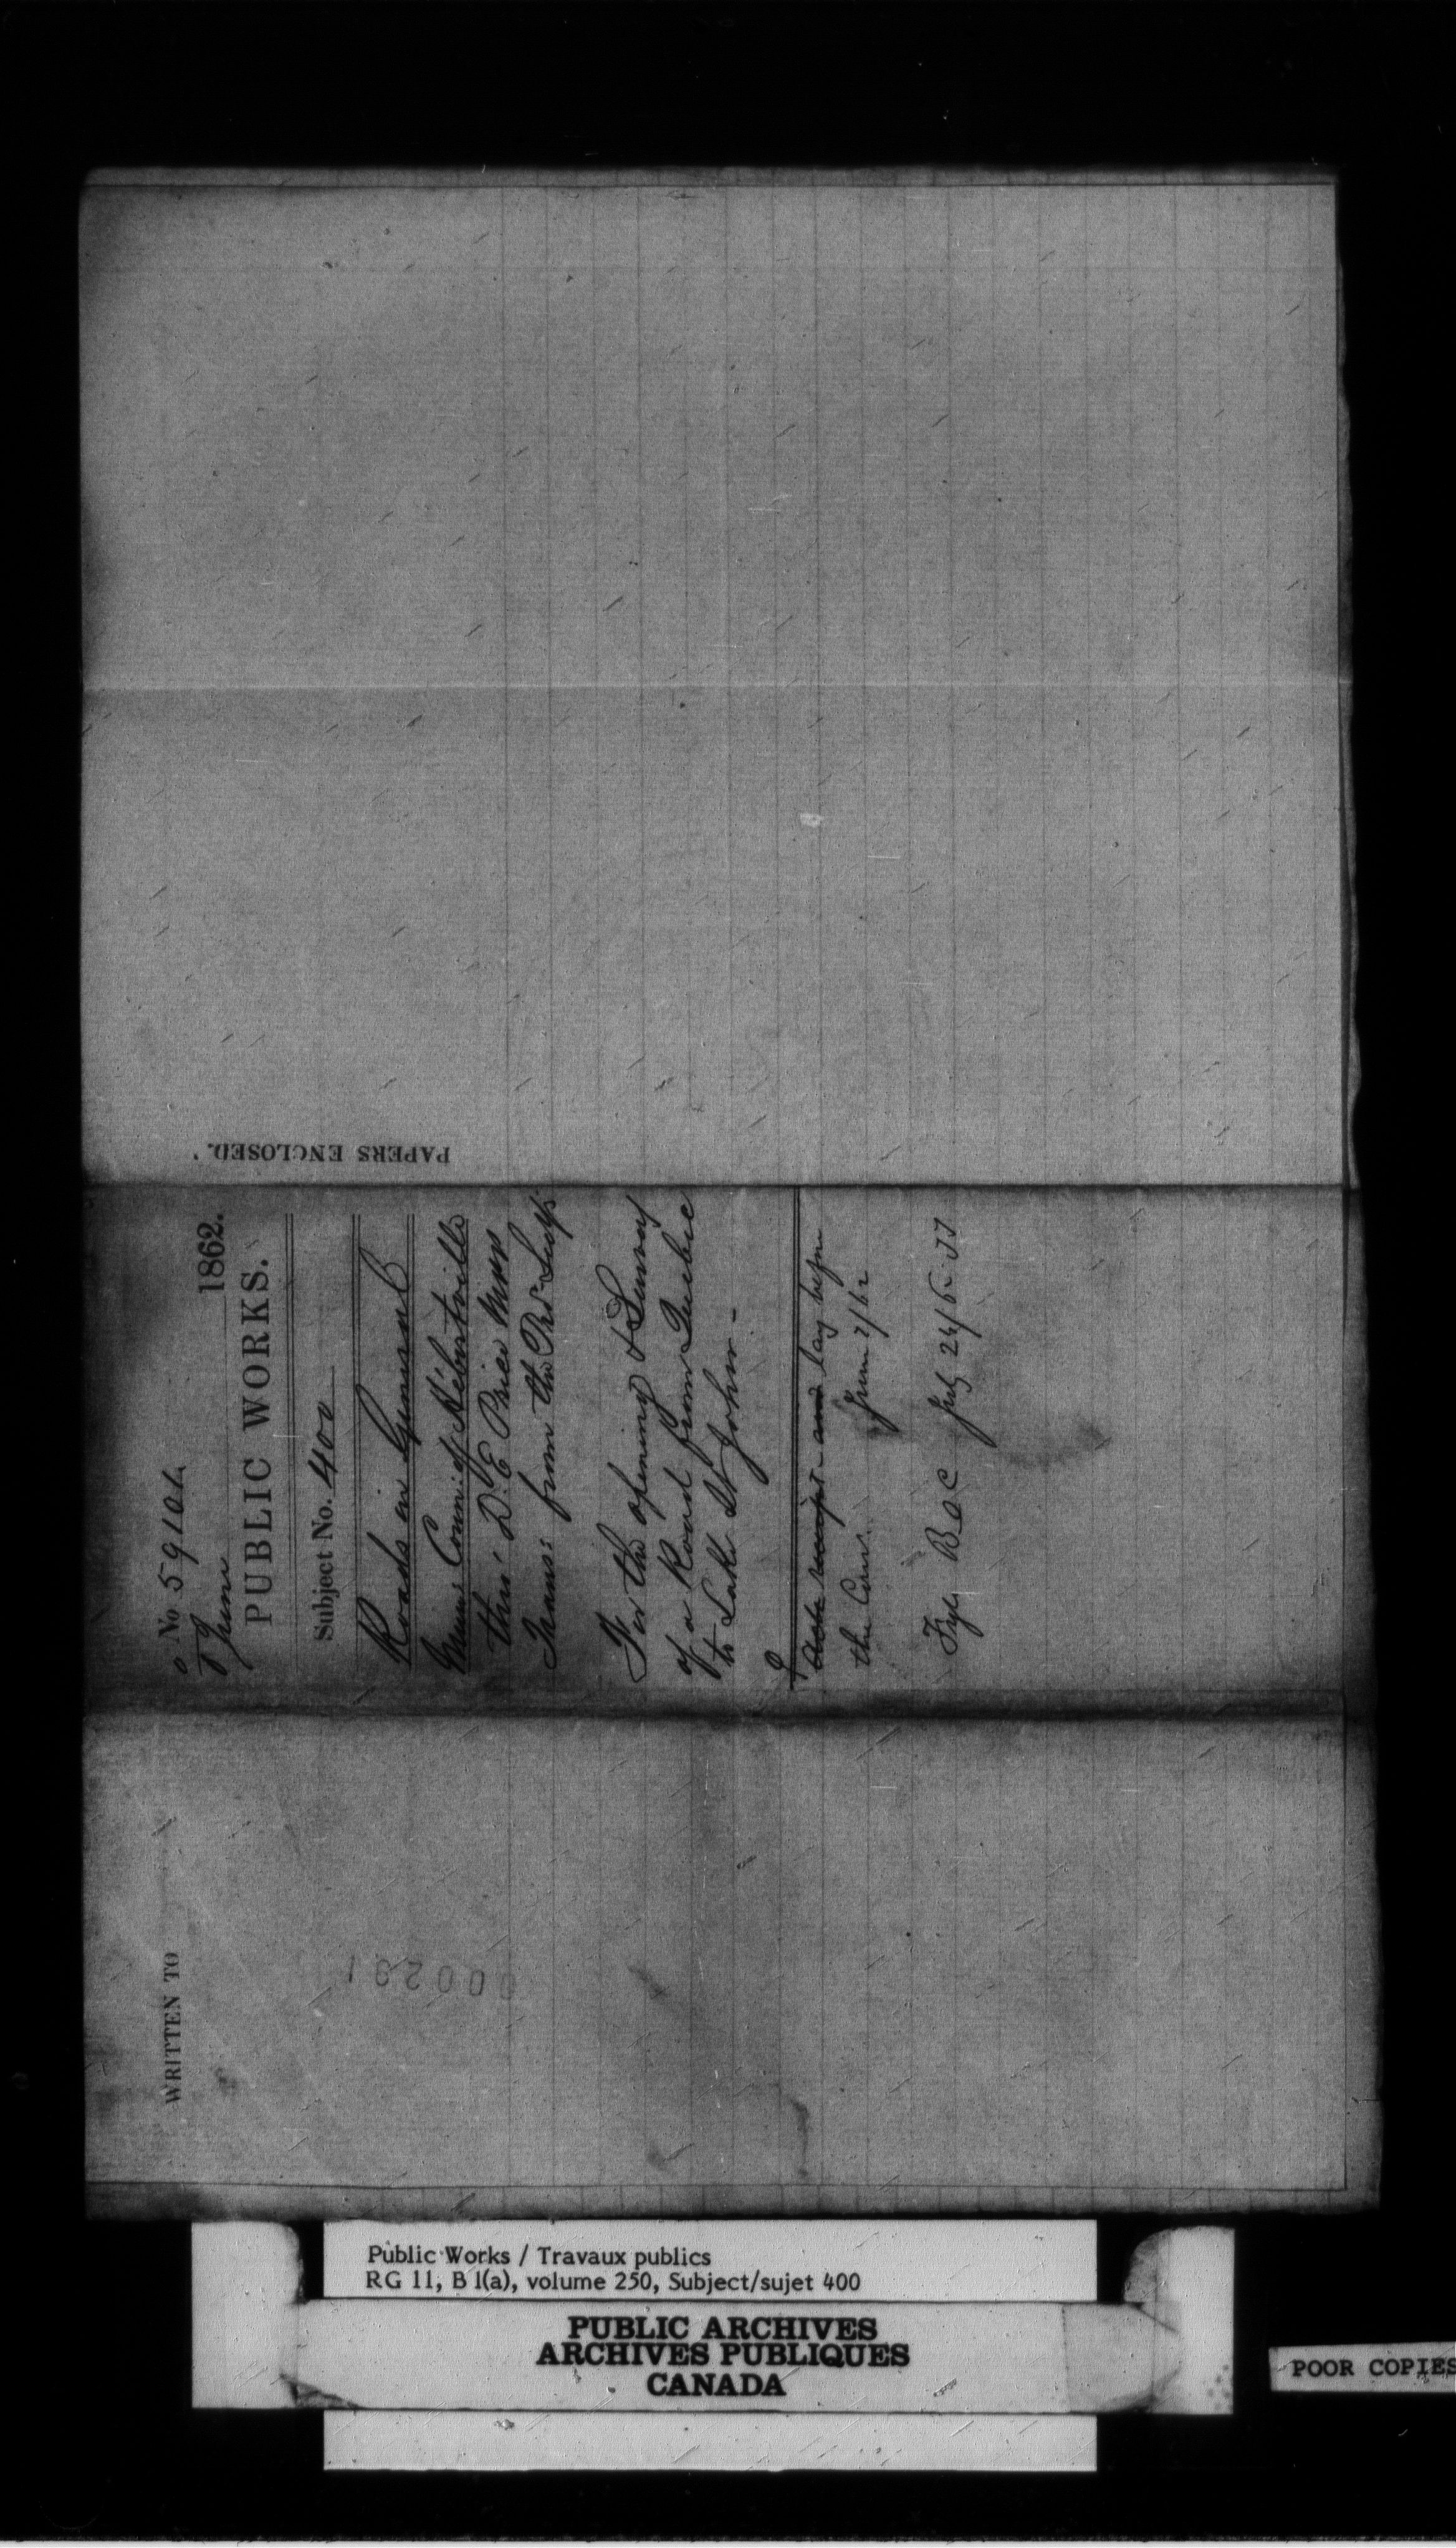 No 59101
June 1862.
PUBLIC WORKS.
Subject No. 400
Roads in General
Muni: Coun: of Hébertville
thro' D. E. Price MPP
Trans: from the Prov Secy's
For the opening & Survey
of a Road from Quebec
to Lake St John -
Ackn receipt and lay before
the Com. June 2/62
Fyle B of C July 24/62 JT
PAPERS ENCLOSED.
WRITTEN TO
000281
Public Works / Travaux publics
RG 11, B 1(a), volume 250, Subject/sujet 400
PUBLIC ARCHIVES
ARCHIVES PUBLIQUES
CANADA
POOR COPIES